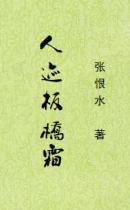 人迹板橋霜
张恨水 著